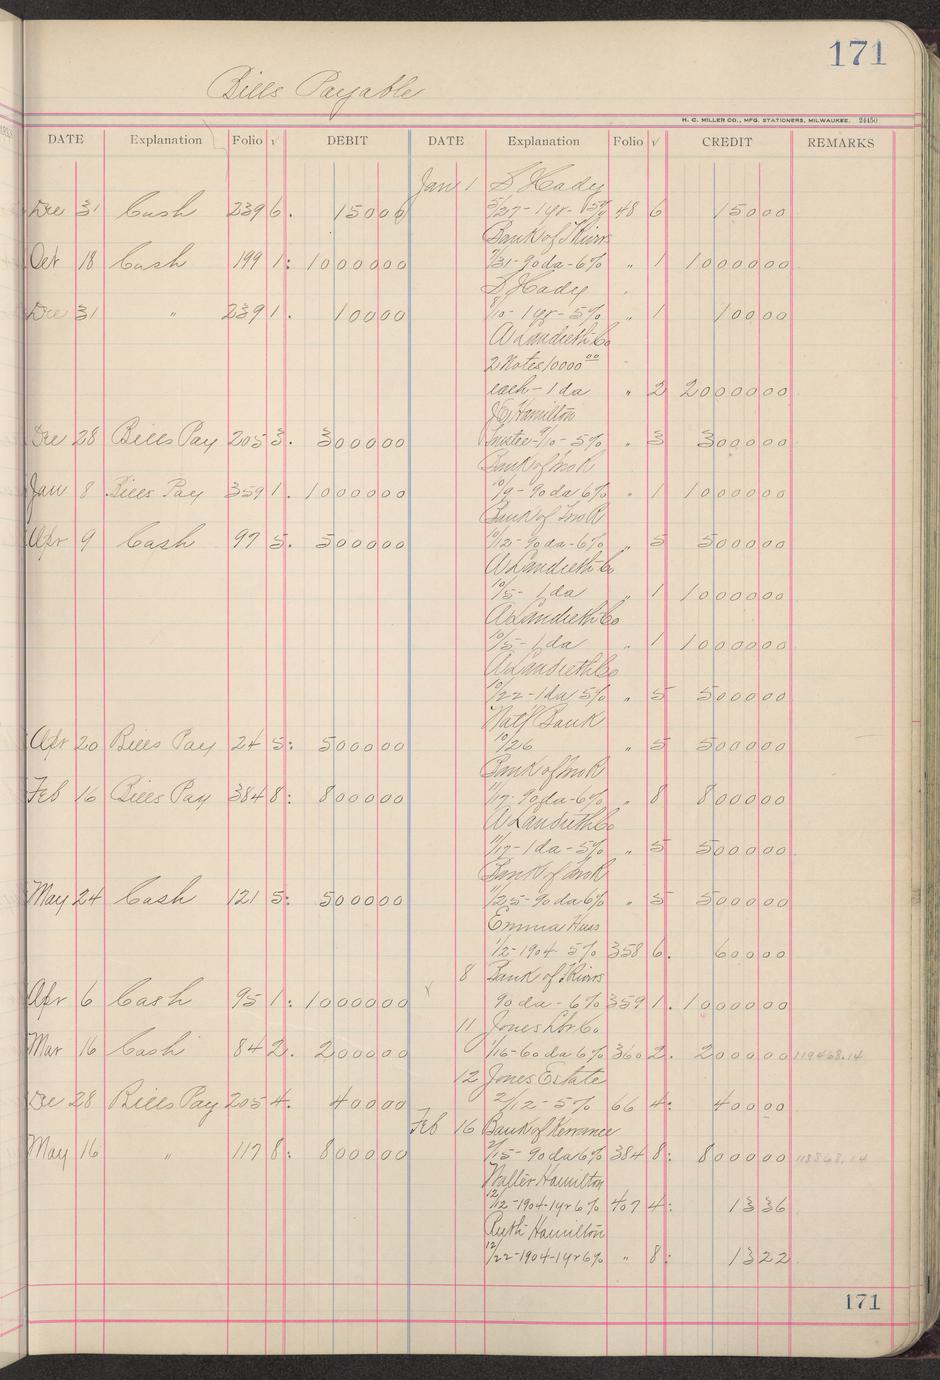 171
Bills Payable
H. C. MILLER CO., MFG. STATIONERS, MILWAUKEE. 24450
DATE Explanation Folio √ DEBIT DATE Explanation Folio √ CREDIT REMARKS
Jan 1 S Hady
Dec 31 Cash 239 6. 15000 5/27-1yr-5% 48 6 15000
Bank of
Oct 18 Cash 199 1: 1000000 7/31-90da-6% " 1 1000000
S Hady
Dec 31 " 239 1. 10000 8/10-1yr-5% " 1 10000
A Landreth Co
2 Notes 10000 00
each-1da " 2 2000000
J E Hamilton
Dec 28 Bills Pay 205 3. 300000 Trustee-9/10-5% " 3 300000
Bank of
Jan 8 Bills Pay 359 1. 1000000 10/9-90da 6% " 1 1000000
Bank of
Apr 9 Cash 97 5. 500000 10/12-90da-6% " 5 500000
A Landreth Co
10/5-1da " 1 1000000
A Landreth Co
10/5-1da " 1 1000000
A Landreth Co
10/22-1da 5% " 5 500000
Nat'l Bank
Apr 20 Bills Pay 24 5: 500000 10/26 " 5 500000
Bank of
Feb 16 Bills Pay 384 8: 800000 11/17-90da-6% " 8 800000
A Landreth Co
11/17-1da-5% " 5 500000
Bank of
May 24 Cash 121 5: 500000 11/25-90da 6% " 5 500000
Emma Huss
1/2-1904-5% 358 6. 60000
8 Bank of
Apr 6 Cash 95 1: 1000000 90da-6% 359 1. 1000000
11 Jones Lbr Co
Mar 16 Cash 84 2. 200000 1/16-60da 6% 360 2. 200000 119468.14
12 Jones Estate
Dec 28 Bills Pay 205 4. 40000 2/12-5% 66 4: 40000
Feb 16 Bank of
May 16 " 117 8: 800000 2/15-90da 6% 384 8: 800000 118868.14
Walter Hamilton
12/12-1904-1yr 6% 407 4: 1336
Ruth Hamilton
12/22-1904-1yr 6% " 8: 1322
171